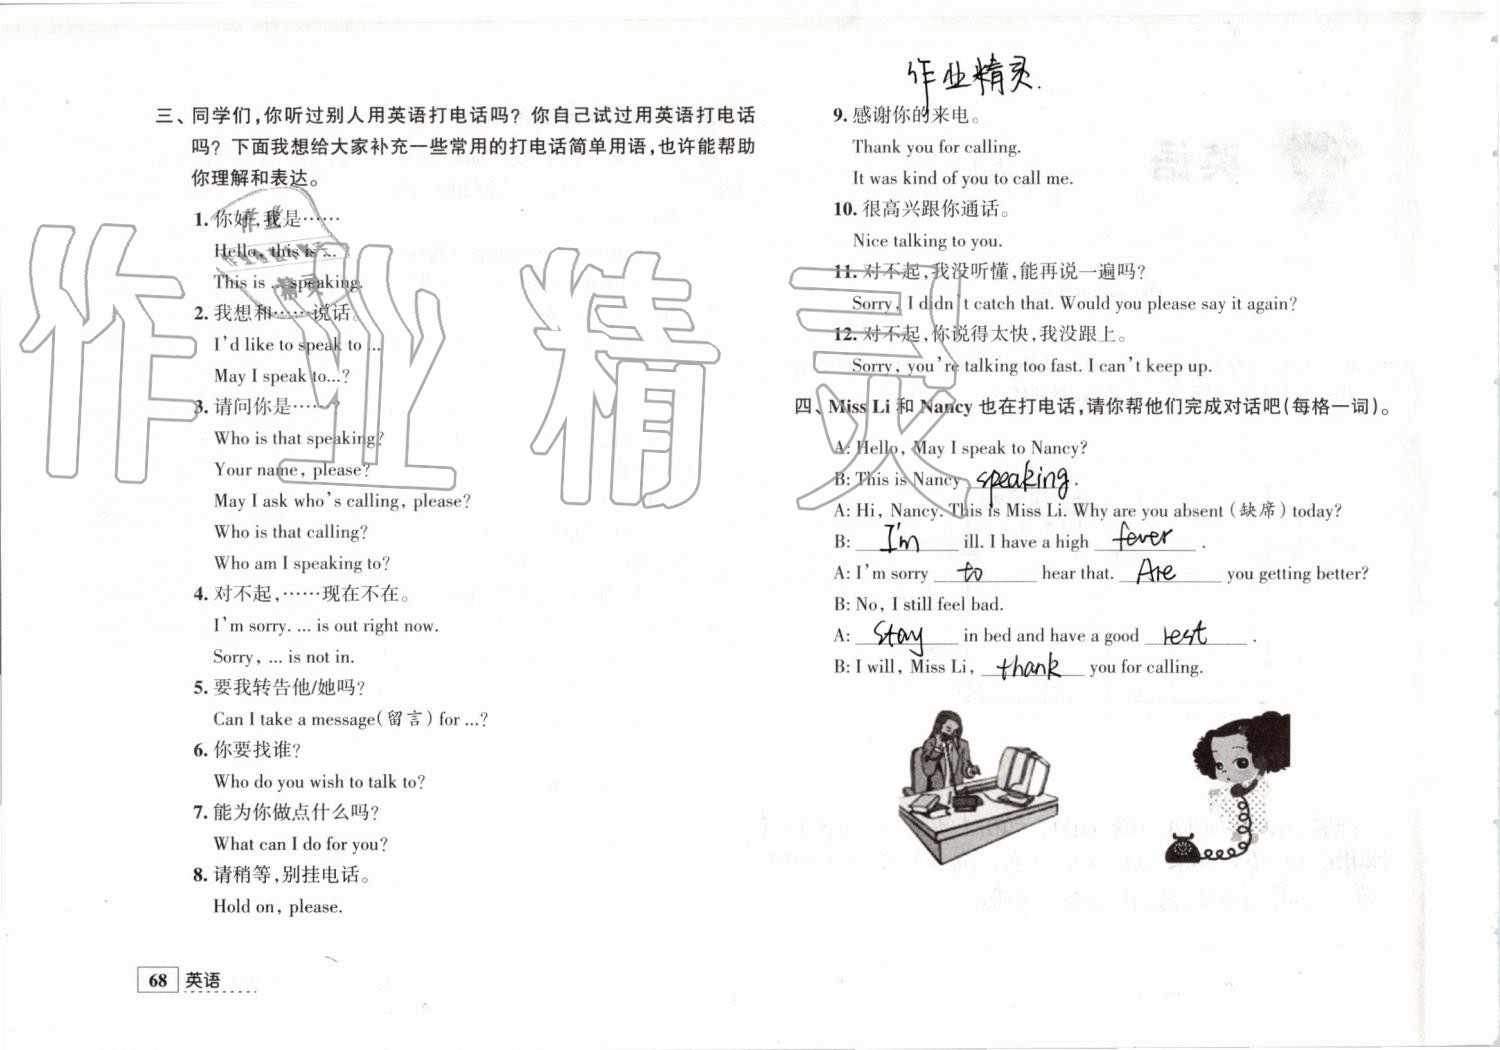 作业精灵.
三、同学们,你听过别人用英语打电话吗? 你自己试过用英语打电话
吗? 下面我想给大家补充一些常用的打电话简单用语,也许能帮助
你理解和表达。
1. 你好,我是……
Hello, this is ...
This is ... speaking.
2. 我想和……说话。
I'd like to speak to ...
May I speak to...?
3. 请问你是……?
Who is that speaking?
Your name, please?
May I ask who's calling, please?
Who is that calling?
Who am I speaking to?
4. 对不起,……现在不在。
I'm sorry. ... is out right now.
Sorry, ... is not in.
5. 要我转告他/她吗?
Can I take a message(留言) for ...?
6. 你要找谁?
Who do you wish to talk to?
7. 能为你做点什么吗?
What can I do for you?
8. 请稍等,别挂电话。
Hold on, please.
68 英语
9. 感谢你的来电。
Thank you for calling.
It was kind of you to call me.
10. 很高兴跟你通话。
Nice talking to you.
11. 对不起,我没听懂,能再说一遍吗?
Sorry, I didn't catch that. Would you please say it again?
12. 对不起,你说得太快,我没跟上。
Sorry, you're talking too fast. I can't keep up.
四、Miss Li 和 Nancy 也在打电话,请你帮他们完成对话吧(每格一词)。
A: Hello, May I speak to Nancy?
B: This is Nancy speaking.
A: Hi, Nancy. This is Miss Li. Why are you absent(缺席) today?
B: I'm ill. I have a high fever .
A: I'm sorry to hear that. Are you getting better?
B: No, I still feel bad.
A: Stay in bed and have a good rest .
B: I will, Miss Li, thank you for calling.
作业精灵